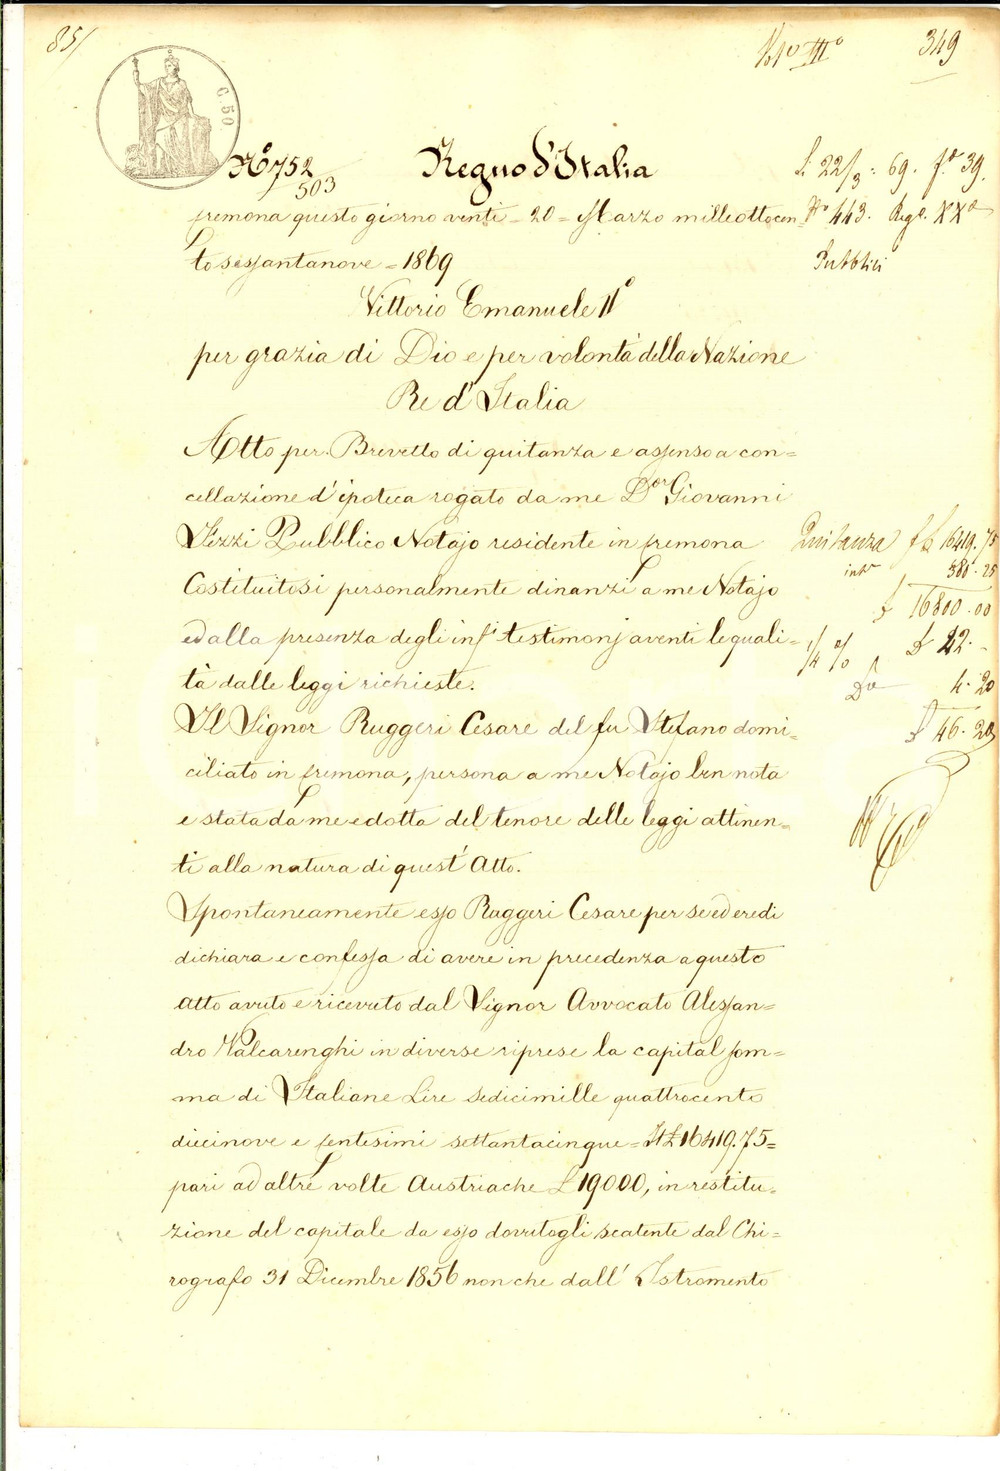 85/
Vol° III°
349
C. 50
N° 752
503
Regno d'Italia
L. 22/3 : 69. f.° 39.
N° 443. Reg.° XX°
Pubblici
Cremona questo giorno venti = 20 = Marzo milleottocen=
to sessantanove = 1869
Vittorio Emanuele II°
per grazia di Dio e per volontà della Nazione
Re d'Italia
Atto per Brevetto di quitanza e assenso a con=
cellazione d'ipoteca rogato da me D.or Giovanni
Fezzi Pubblico Notajo residente in Cremona
Costituitosi personalmente dinanzi a me Notajo
ed alla presenza degli inf.i testimonj aventi le quali=
tà dalle leggi richieste.
Il Signor Ruggeri Cesare del fu Stefano domi=
ciliato in Cremona, persona a me Notajo ben nota
e stata da me edotta del tenore delle leggi attinen=
ti alla natura di quest'Atto.
Spontaneamente esso Ruggeri Cesare per se ed eredi
dichiara e confessa di avere in precedenza a questo
atto avuto e ricevuto dal Signor Avvocato Alessan=
dro Valcarenghi in diverse riprese la capital som=
ma di Italiane Lire sedicimille quattrocento
diecinove e Centesimi settantacinque = It £ 16419.75=
pari ad altre volte Austriache £ 19000, in restitu=
zione del capitale da esso dovutogli scatente dal Chi=
rografo 31 Dicembre 1856 non che dall'Istromento
Quitanza £ 16419.75
int.i 380.25
£ 16800.00
1/4 %
£ 42.-
4.20
£ 46.20